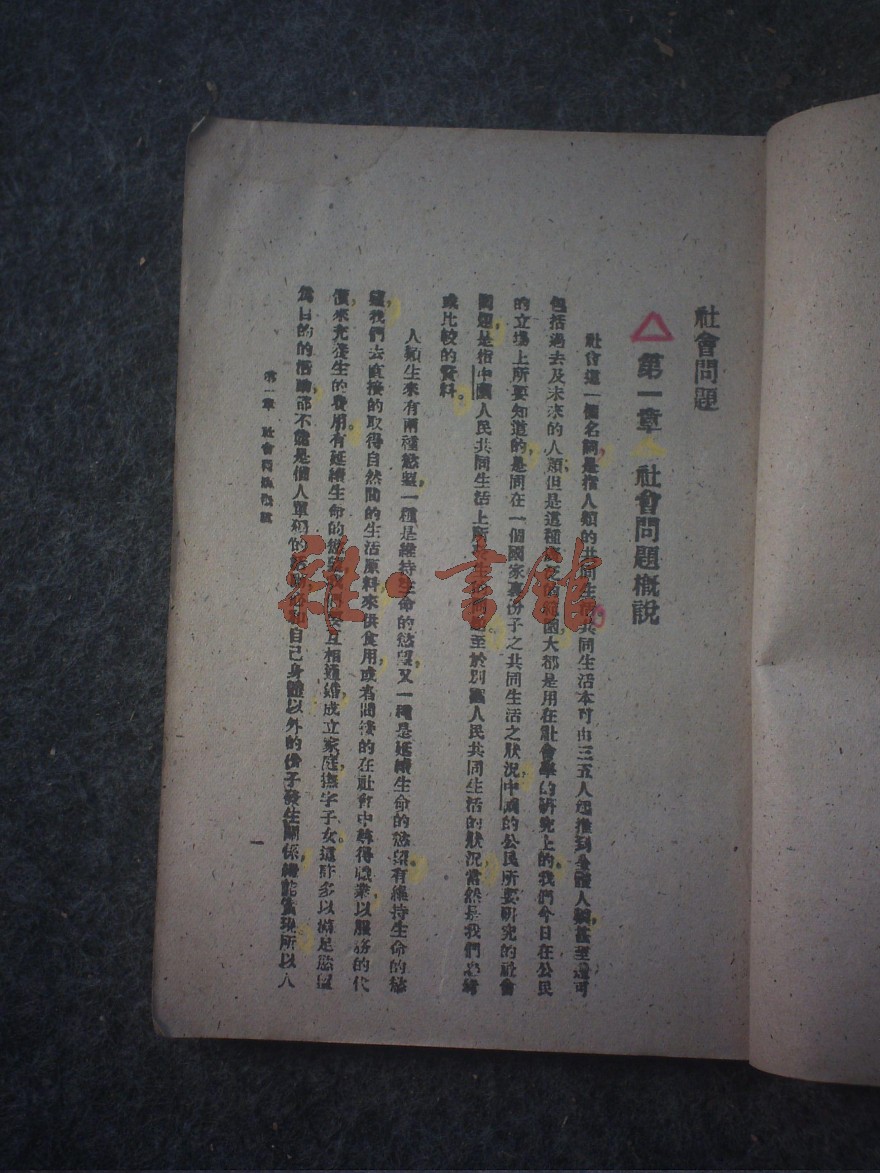 社會問題
第一章 社會問題概說
社會這一個名詞,是指人類的共同生活共同生活本可由三五人起推到全體人類,甚至還可
包括過去及未來的人類但是這種廣泛的範圍大都是用在社會學的研究上的。我們今日在公民
的立場上所要知道的,是同在一個國家裏份子之共同生活之狀況,中國的公民所要研究的社會
問題,是指中國人民共同生活上所發生的問題。至於別國人民共同生活的狀況,當然是我們參考
或比較的資料。
人類生來有兩種慾望,一種是維持生命的慾望,又一種是延續生命的慾望。有維持生命的慾
望,我們去直接的取得自然間的生活原料來供食用,或者間接的在社會中尋得職業,以服務的代
價來充養生的費用。有延續生命的慾望,我們要互相通婚,成立家庭,撫字子女。這許多以滿足慾望
爲目的的活動,都不能是個人單獨的活動,必和自己身體以外的份子發生關係,纔能實現。所以人
第一章 社會問題概說
一
雜·書館